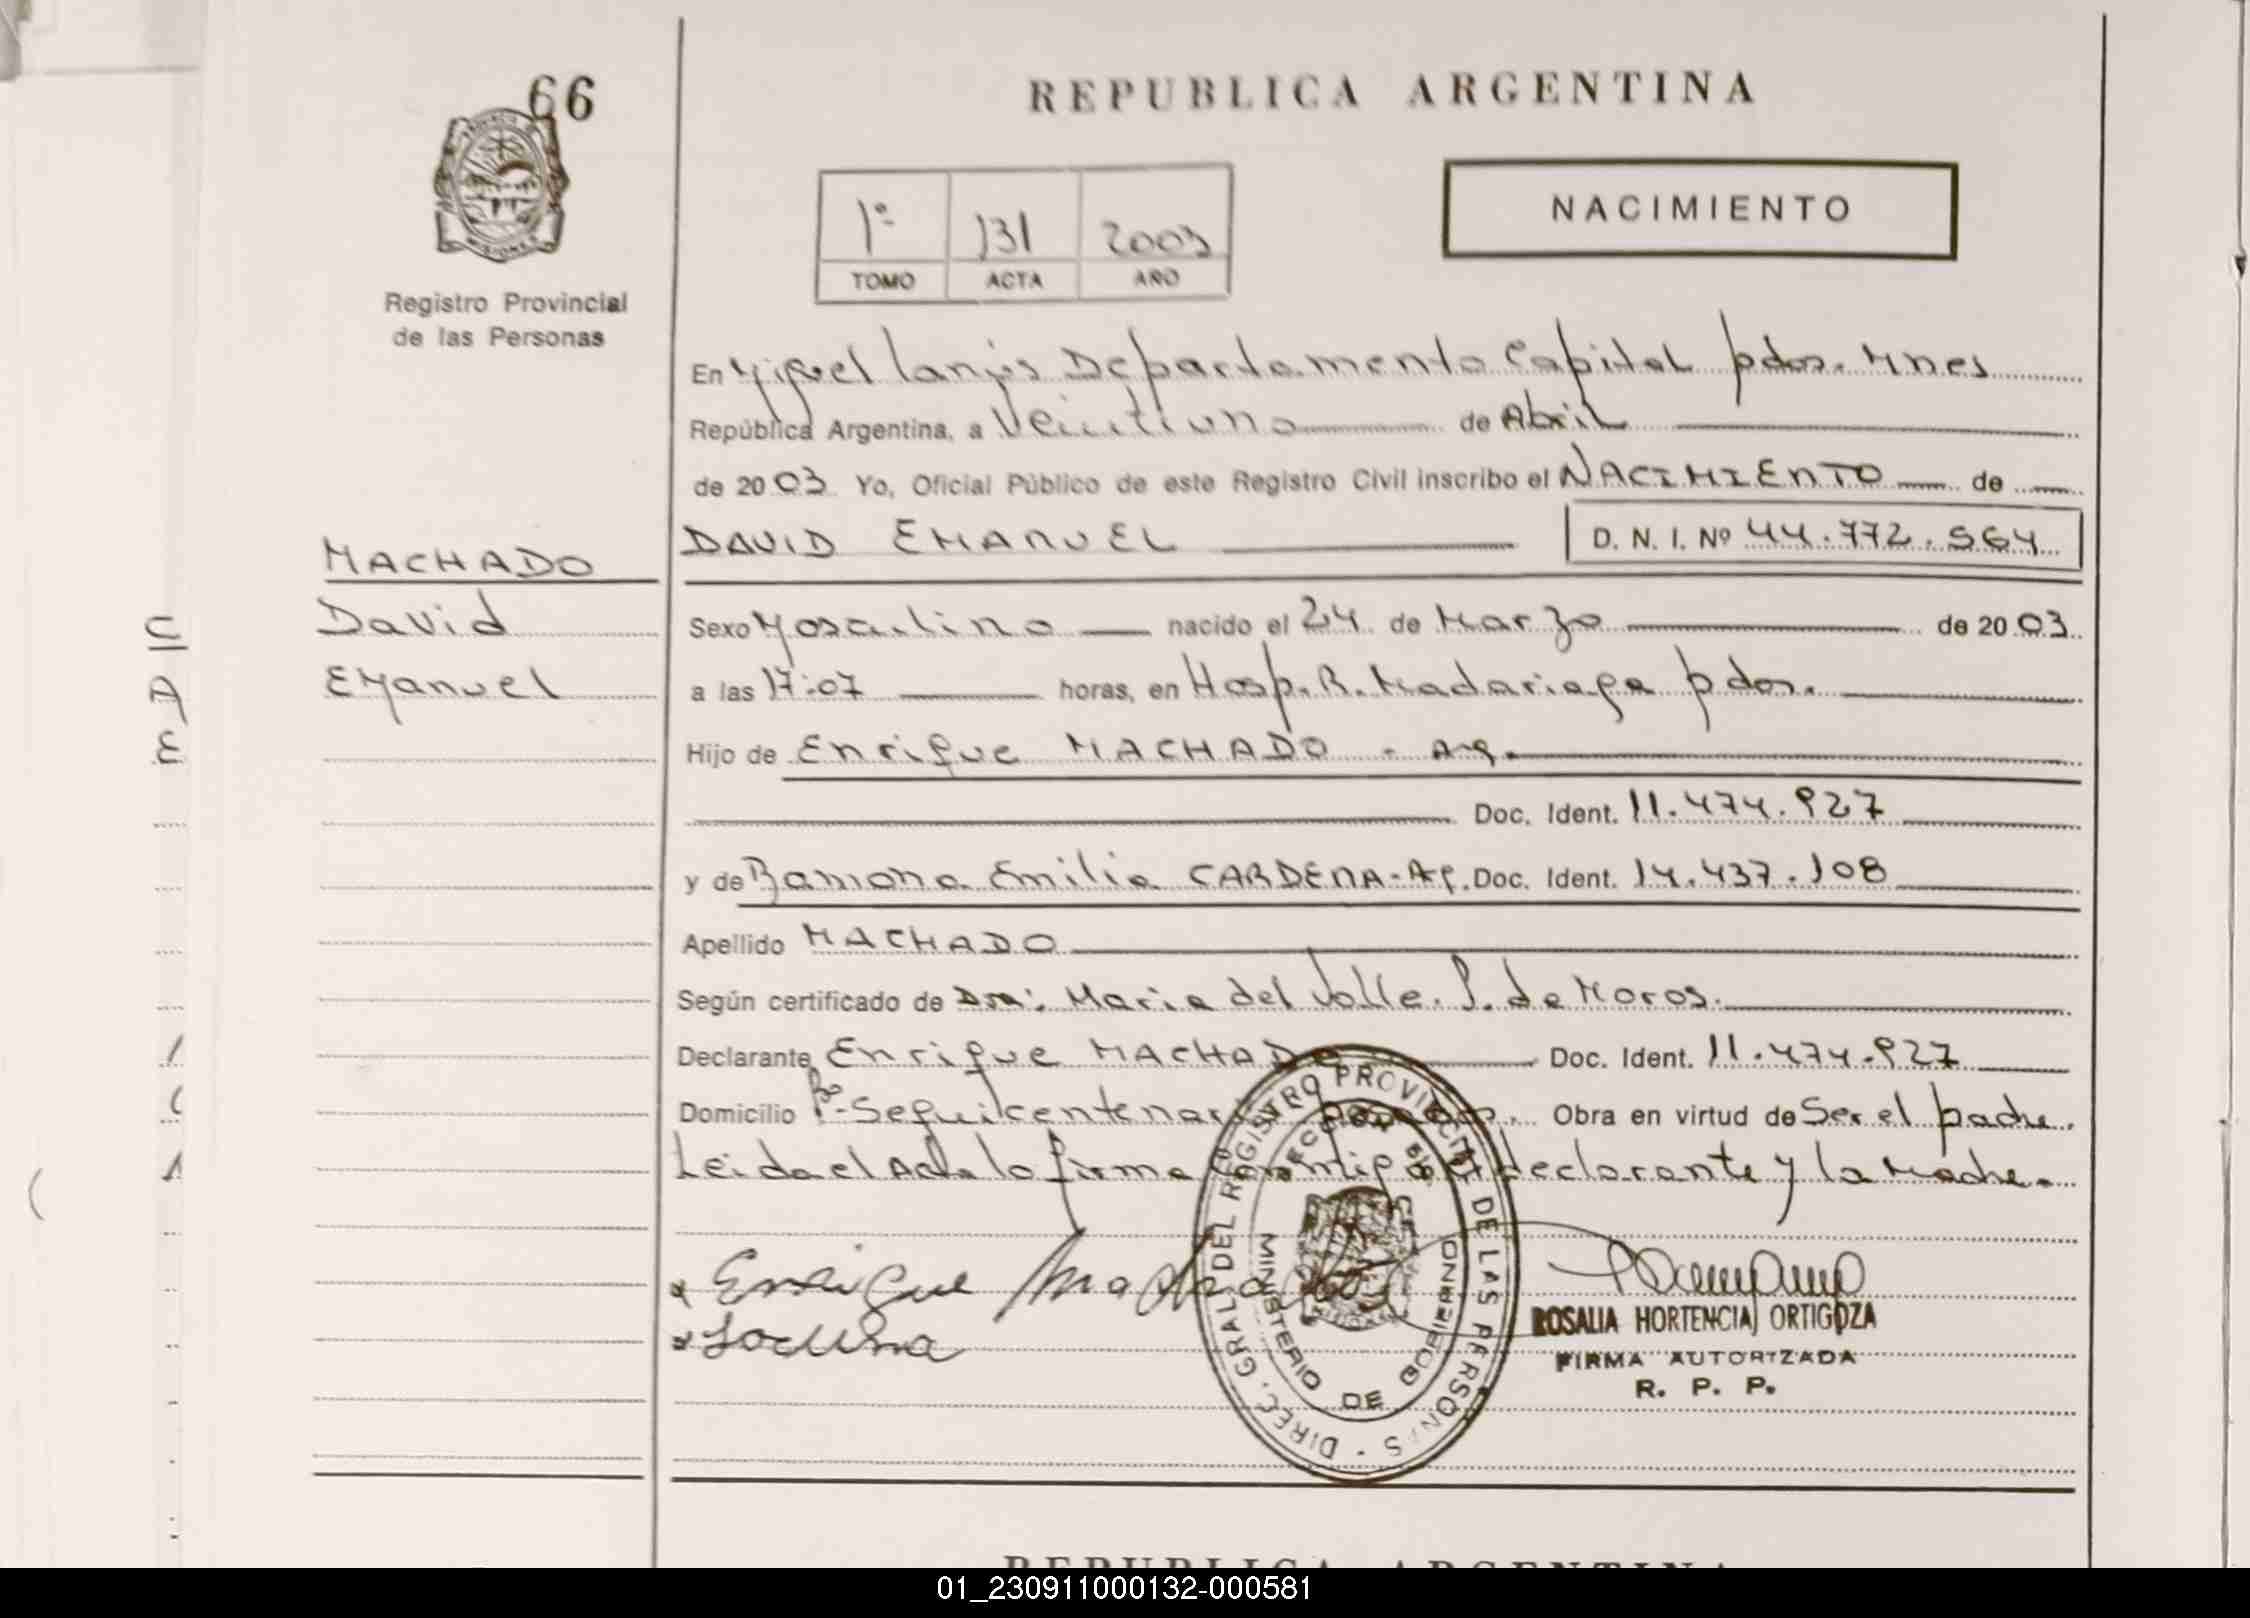 66
REPUBLICA ARGENTINA
MISIONES
Registro Provincial
de las Personas
1º 131 2003
TOMO ACTA AÑO
NACIMIENTO
En Miguel Lanús Departamento Capital pdas. Mnes
República Argentina, a Veintiuno de Abril
de 2003 Yo, Oficial Público de este Registro Civil inscribo el NACIMIENTO de
MACHADO
David
Emanuel
DAVID EMANUEL D. N. I. Nº 44.772.564
Sexo Masculino nacido el 24 de Marzo de 2003
a las 17:07 horas, en Hosp. R. Madariaga pdas.
Hijo de Enrique MACHADO - Arg.
Doc. Ident. 11.474.927
y de Ramona Emilia CARDENA - Ag. Doc. Ident. 14.437.108
Apellido MACHADO
Según certificado de Dra: Maria del Valle. S. de Moros.
Declarante Enrique MACHADO Doc. Ident. 11.474.927
Domicilio Bº Sequicentenario Obra en virtud de Ser el padre.
Leida el Acta lo firma conmigo el declarante y la Madre.
Enrique Machado
ROSALIA HORTENCIA ORTIGOZA
FIRMA AUTORIZADA
R. P. P.
DIREC. GRAL. DEL REGISTRO PROVINCIAL DE LAS PERSONAS
MINISTERIO DE GOBIERNO
C
A
E
REPUBLICA ARGENTINA
01_230911000132-000581